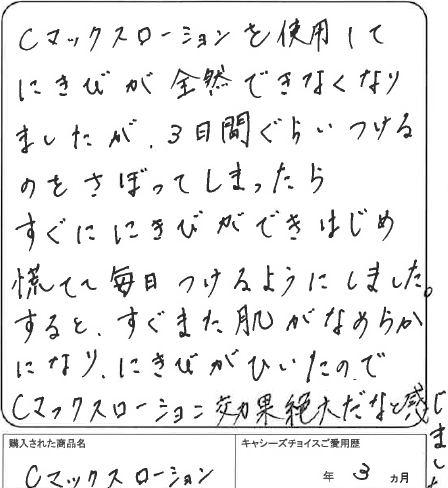 Cマックスローションを使用して
にきびが全然できなくなり
ましたが、3日間ぐらいつける
のをさぼってしまったら
すぐににきびができはじめ
慌てて毎日つけるようにしました。
すると、すぐまた肌がなめらか
になり、にきびがひいたので
Cマックスローション効果絶大だなと感
じました
購入された商品名
Cマックスローション
キャシーズチョイスご愛用歴
年 3 ヵ月